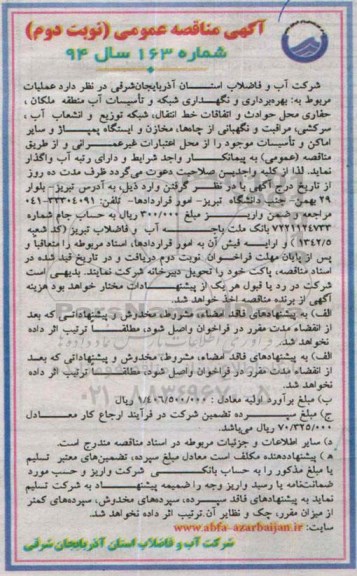 آگهی مناقصه عمومی (نوبت دوم)
شماره ۱۶۳ سال ۹۴
شرکت آب و فاضلاب استان آذربایجان‌شرقی در نظر دارد عملیات
مربوط به: بهره‌برداری و نگهداری شبکه و تأسیسات آب منطقه ملکان ،
حفاری محل حوادث و اتفاقات خط انتقال، شبکه توزیع و انشعاب آب ،
سرکشی، مراقبت و نگهبانی از چاهها، مخازن و ایستگاه پمپاژ و سایر
اماکن و تأسیسات موجود را از محل اعتبارات غیرعمرانی و از طریق
مناقصه (عمومی) به پیمانکار واجد شرایط و دارای رتبه آب واگذار
نماید. لذا از کلیه واجدین صلاحیت دعوت می‌گردد ظرف مدت ده روز
از تاریخ درج آگهی با در نظر گرفتن وارد ذیل، به آدرس تبریز- بلوار
۲۹ بهمن- جنب دانشگاه تبریز- امور قراردادها- تلفن: ۳۳۳۰۴۰۹۱-۰۴۱
مراجعه و ضمن واریز مبلغ ۳۰۰/۰۰۰ ریال به حساب جام شماره
۷۲۲۱۱۲۴۷۳۳ بانک ملت باجه آب و فاضلاب تبریز (کد شعبه
۱۳۴۲/۵) و ارایه فیش آن به امور قراردادها، اسناد مربوطه را متعاقبا و
پس از پایان مهلت فراخوان نوبت دوم دریافت و در تاریخ قید شده در
اسناد مناقصه، پاکت خود را تحویل دبیرخانه شرکت نمایند. بدیهی است
شرکت در رد یا قبول هر یک از پیشنهادات مختار خواهد بود هزینه
آگهی از برنده مناقصه اخذ خواهد شد.
الف) به پیشنهادهای فاقد امضاء، مشروط، مخدوش و پیشنهاداتی که بعد
از انقضاء مدت مقرر در فراخوان واصل شود، مطلقا ترتیب اثر داده
نخواهد شد.
الف) به پیشنهادهای فاقد امضاء، مشروط، مخدوش و پیشنهاداتی که بعد
از انقضاء مدت مقرر در فراخوان واصل شود، مطلقا ترتیب اثر داده
نخواهد شد.
ب) مبلغ برآورد اولیه معادل: ۱/۴۰۶/۵۰۰/۰۰۰ ریال
ج) مبلغ سپرده تضمین شرکت در فرآیند ارجاع کار معادل
۷۰/۳۲۵/۰۰۰ ریال می‌باشد.
د) سایر اطلاعات و جزئیات مربوطه در اسناد مناقصه مندرج است.
ه) پیشنهاددهنده مکلف است معادل مبلغ سپرده، تضمین‌های معتبر تسلیم
یا مبلغ مذکور را به حساب بانکی شرکت واریز و حسب مورد
ضمانت‌نامه یا رسید واریز وجه را ضمیمه پیشنهاد به شرکت تسلیم
نماید به پیشنهادهای فاقد سپرده، سپرده‌های مخدوش، سپرده‌های کمتر
از میزان مقرر، چک و نظایر آن ترتیب اثر داده نخواهد شد.
سایت: www.abfa-azarbaijan.ir
شرکت آب و فاضلاب استان آذربایجان شرقی